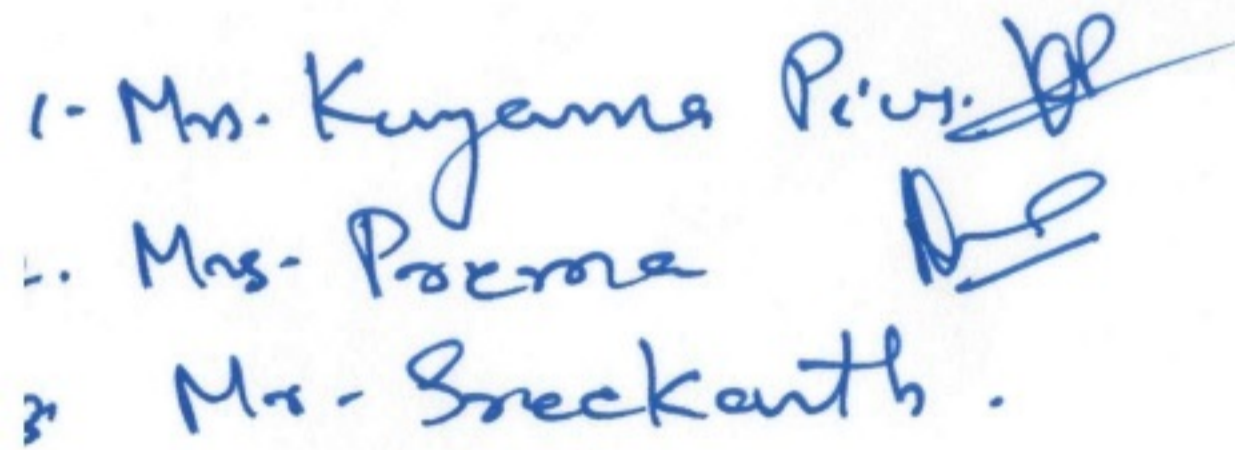 1- Mrs. Kuyama Pius.
2. Mrs- Prema
3. Mr- Sreekanth.